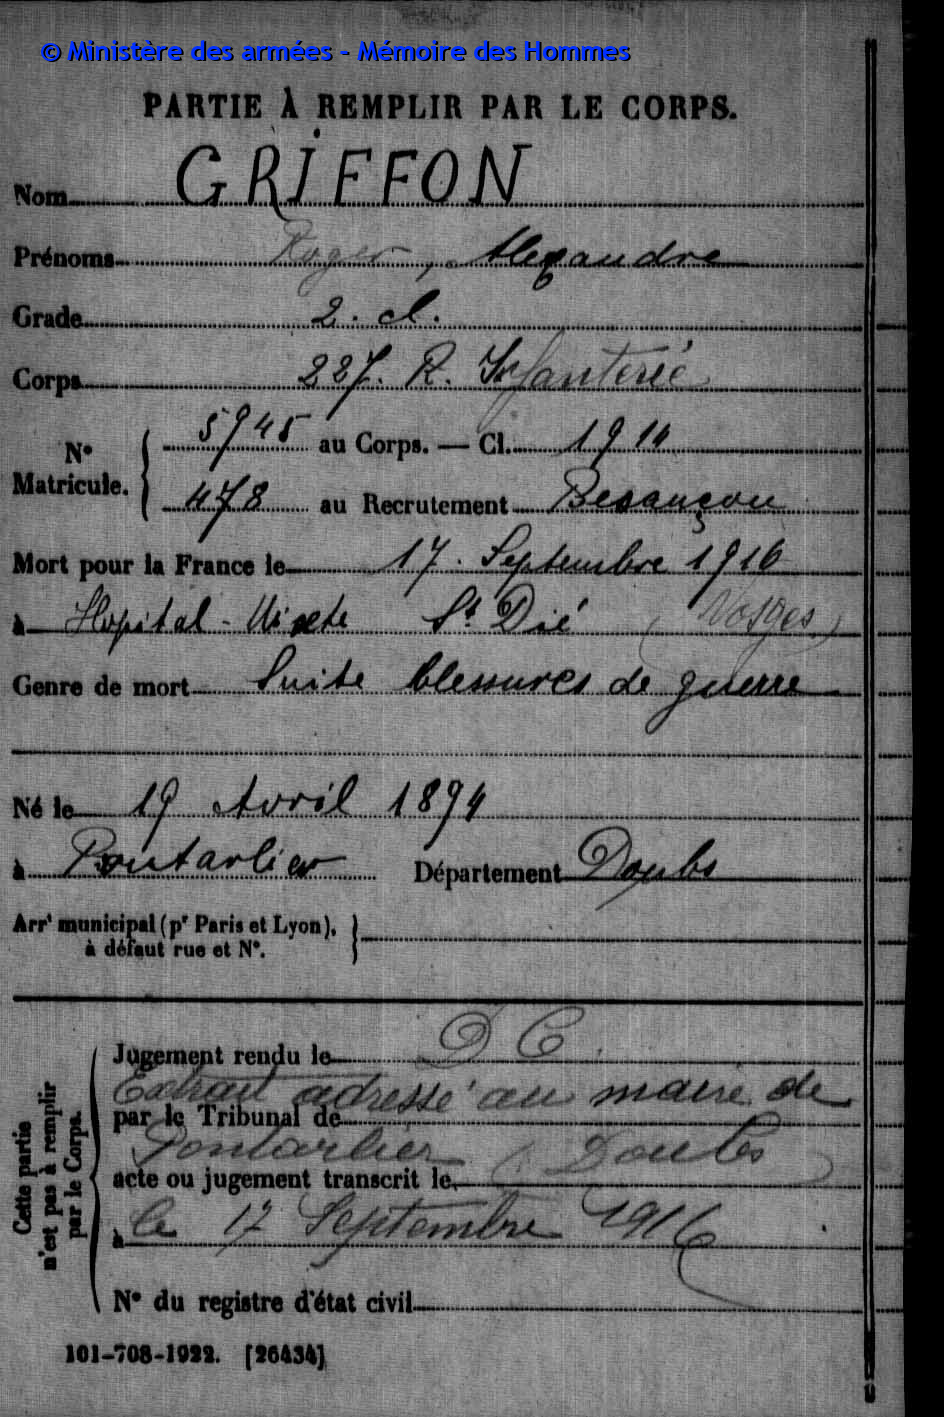 © Ministère des armées - Mémoire des Hommes
PARTIE À REMPLIR PAR LE CORPS.
Nom GRIFFON
Prénoms Roger, Alexandre
Grade 2. cl.
Corps 227. R. Infanterie
N° Matricule. { 5945 au Corps. — Cl. 1914
478 au Recrutement Besançon
Mort pour la France le 17. Septembre 1916
à Hopital - Mixte St Dié (Vosges)
Genre de mort Suite blessures de guerre
Né le 19 Avril 1894
à Pontarlier Département Doubs
Arrt municipal (pr Paris et Lyon), }
à défaut rue et N°.
Cette partie n'est pas à remplir par le Corps.
Jugement rendu le D C.
Extrait adressé au maire de
par le Tribunal de
Pontarlier (Doubs)
acte ou jugement transcrit le
à le 17 Septembre 1916
N° du registre d'état civil
101-708-1922. [26434]